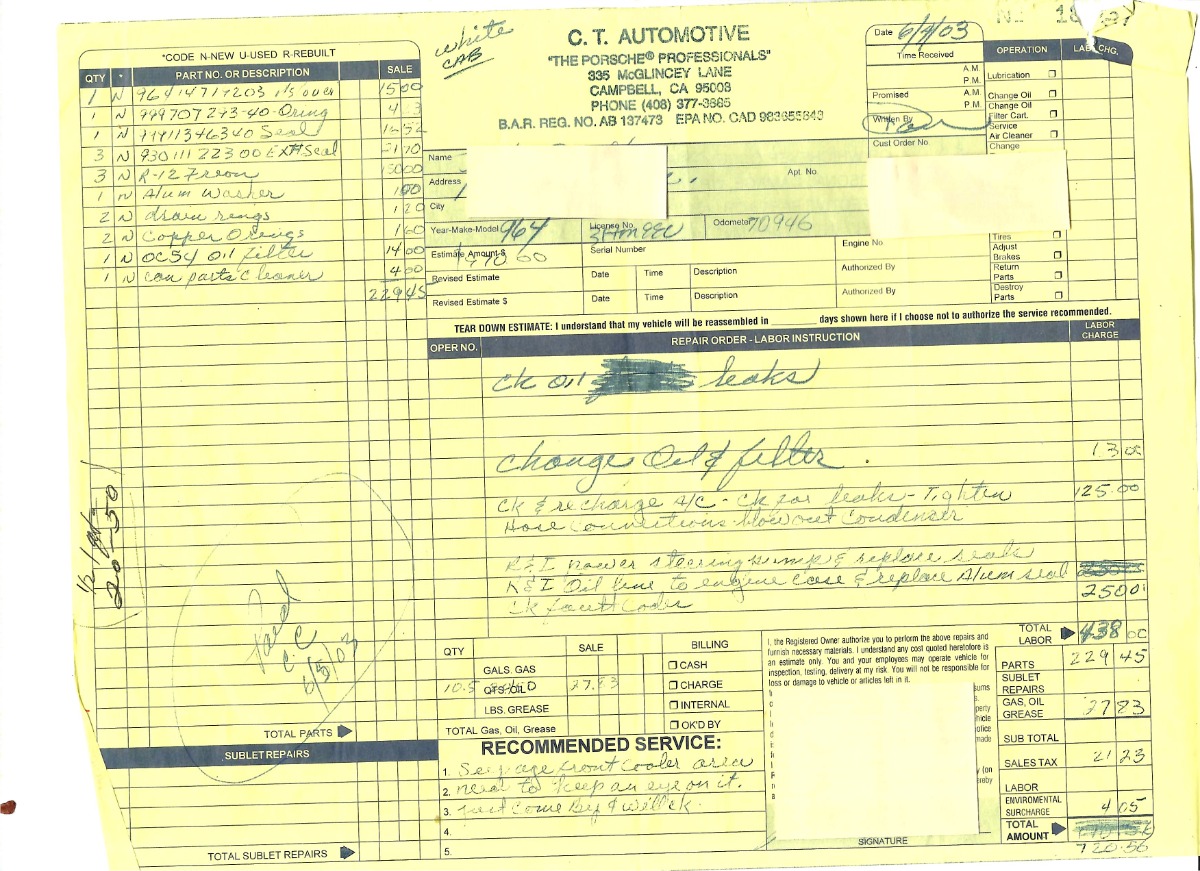 white
CAB
C. T. AUTOMOTIVE
"THE PORSCHE® PROFESSIONALS"
335 McGLINCEY LANE
CAMPBELL, CA 95008
PHONE (408) 377-3865
B.A.R. REG. NO. AB 137473 EPA NO. CAD 983655843
Date 6/4/03
Time Received
A.M.
P.M.
Promised A.M.
P.M.
Written By
Cust Order No.
OPERATION LAB. CHG.
Lubrication
Change Oil
Change Oil
Filter Cart.
Service
Air Cleaner
Change
Tires
Adjust
Brakes
Return
Parts
Destroy
Parts
*CODE N-NEW U-USED R-REBUILT
QTY * PART NO. OR DESCRIPTION SALE
1 N 15 00
1 N 999707273-40-Oring
1 N 99911346340 Seal 16 52
3 N 930 111 223 00 Exh Seal 21 70
3 N R-12 Freon 150 00
1 N Alum Washer 1 00
2 N drain rings 1 20
2 N Copper O rings 1 60
1 N OC54 oil filter 14 00
1 N can parts cleaner 4 00
229 45
Name
Address Apt. No.
City
Year-Make-Model 964 License No. Odometer 70946
Estimate Amount $ Serial Number Engine No
Revised Estimate Date Time Description Authorized By
Revised Estimate $ Date Time Description Authorized By
TEAR DOWN ESTIMATE: I understand that my vehicle will be reassembled in ______ days shown here if I choose not to authorize the service recommended.
OPER NO. REPAIR ORDER - LABOR INSTRUCTION LABOR CHARGE
ck oil leaks
change Oil & filter . 13 00
ck & recharge A/C - ck for leaks - Tighten 125.00
Hose Connections blow out Condenser
R&I power steering pump & replace seals
R&I Oil line to engine case & replace Alum seal 250 0
ck fault Codes
1/2
20-50
Paid
CC
6/5/03
TOTAL PARTS
SUBLET REPAIRS
TOTAL SUBLET REPAIRS
QTY SALE BILLING
GALS. GAS CASH
10.5 QTS. OIL 27.83 CHARGE
LBS. GREASE INTERNAL
TOTAL Gas, Oil, Grease OK'D BY
RECOMMENDED SERVICE:
1. Seepage front Cooler area
2. need to keep an eye on it.
3. just come by & will ck.
4.
5.
I, the Registered Owner authorize you to perform the above repairs and
furnish necessary materials. I understand any cost quoted heretofore is
an estimate only. You and your employees may operate vehicle for
inspection, testing, delivery at my risk. You will not be responsible for
loss or damage to vehicle or articles left in it.
SIGNATURE
TOTAL LABOR 438 00
PARTS 229 45
SUBLET REPAIRS
GAS, OIL GREASE 27 83
SUB TOTAL
SALES TAX 21 23
LABOR
ENVIROMENTAL SURCHARGE 4 05
TOTAL AMOUNT
720.56